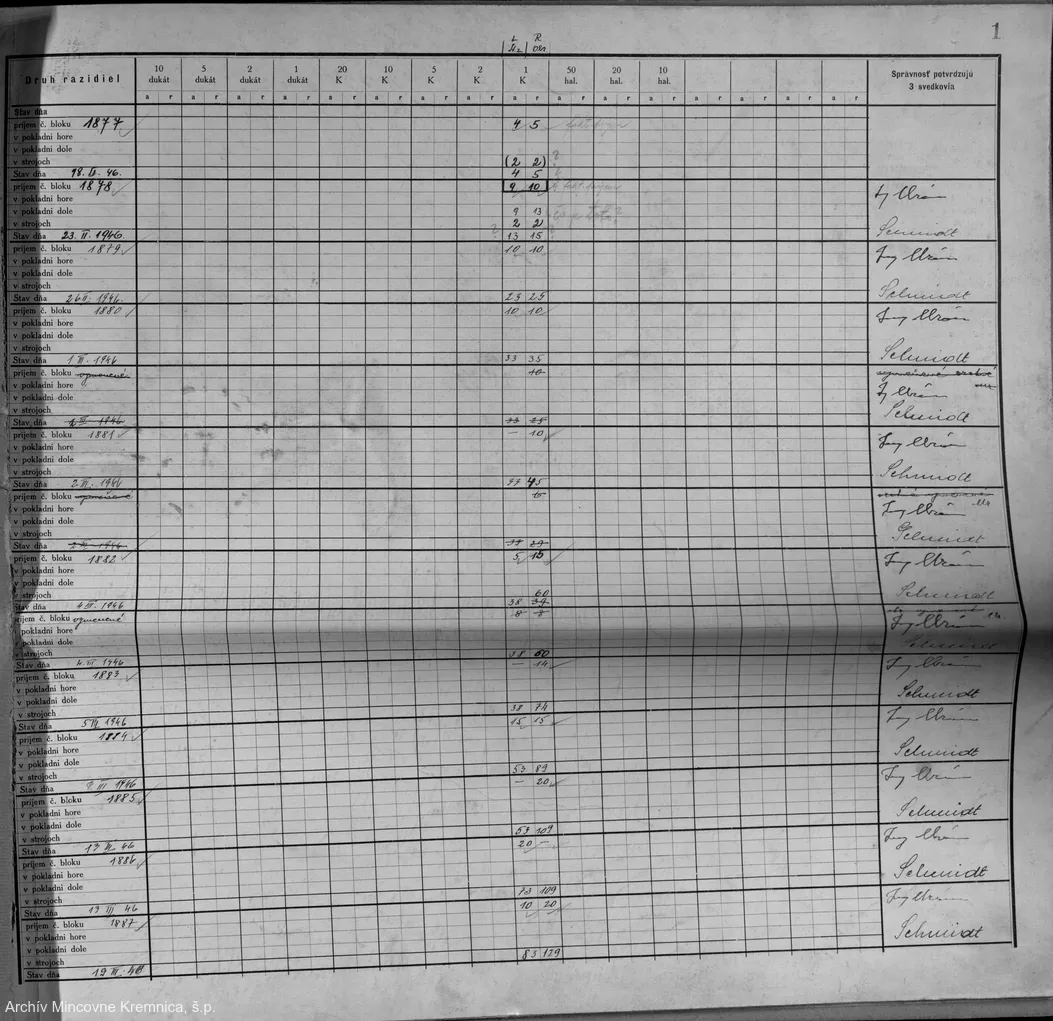 1
Druh razidiel 10 dukát 5 dukát 2 dukát 1 dukát 20 K 10 K 5 K 2 K 1 K 50 hal. 20 hal. 10 hal. Správnosť potvrdzujú 3 svedkovia
a r a r a r a r a r a r a r a r a r a r a r a r a r a r a r a r
Stav dňa
príjem č. bloku 1877 4 5
v pokladni hore
v pokladni dole
v strojoch (2 2)
Stav dňa 18. II. 46. 4 5
príjem č. bloku 1878 9 10
v pokladni hore
v pokladni dole 9 13
v strojoch 2 2
Stav dňa 23. II. 1946. 13 15 Schmidt
príjem č. bloku 1879 10 10
v pokladni hore
v pokladni dole
v strojoch
Stav dňa 26 II. 1946. 23 25 Schmidt
príjem č. bloku 1880 10 10
v pokladni hore
v pokladni dole
v strojoch
Stav dňa 1 III. 1946 33 35 Schmidt
príjem č. bloku 10
v pokladni hore
v pokladni dole
v strojoch Schmidt
Stav dňa 2 III 1946
príjem č. bloku 1881 — 10
v pokladni hore
v pokladni dole
v strojoch Schmidt
Stav dňa 2 III. 1946 33 45
príjem č. bloku
v pokladni hore
v pokladni dole
v strojoch Schmidt
Stav dňa
príjem č. bloku 1882 5 15
v pokladni hore
v pokladni dole
v strojoch 60 Schmidt
Stav dňa 4 III. 1946 38
príjem č. bloku 8 8
v pokladni hore
v pokladni dole
v strojoch 38 60
Stav dňa 4. III 1946 — 14
príjem č. bloku 1883
v pokladni hore Schmidt
v pokladni dole
v strojoch 38 74
Stav dňa 5 III. 1946 15 15
príjem č. bloku 1884
v pokladni hore Schmidt
v pokladni dole
v strojoch 53 89
Stav dňa III 1946 — 20
príjem č. bloku 1885
v pokladni hore Schmidt
v pokladni dole
v strojoch 53 109
Stav dňa 13 III. 46 20 —
príjem č. bloku 1886
v pokladni hore Schmidt
v pokladni dole
v strojoch 73 109
Stav dňa 19 III 46 10 20
príjem č. bloku 1887
v pokladni hore Schmidt
v pokladni dole
v strojoch 83 129
Stav dňa 19 III. 46
Archív Mincovne Kremnica, š.p.